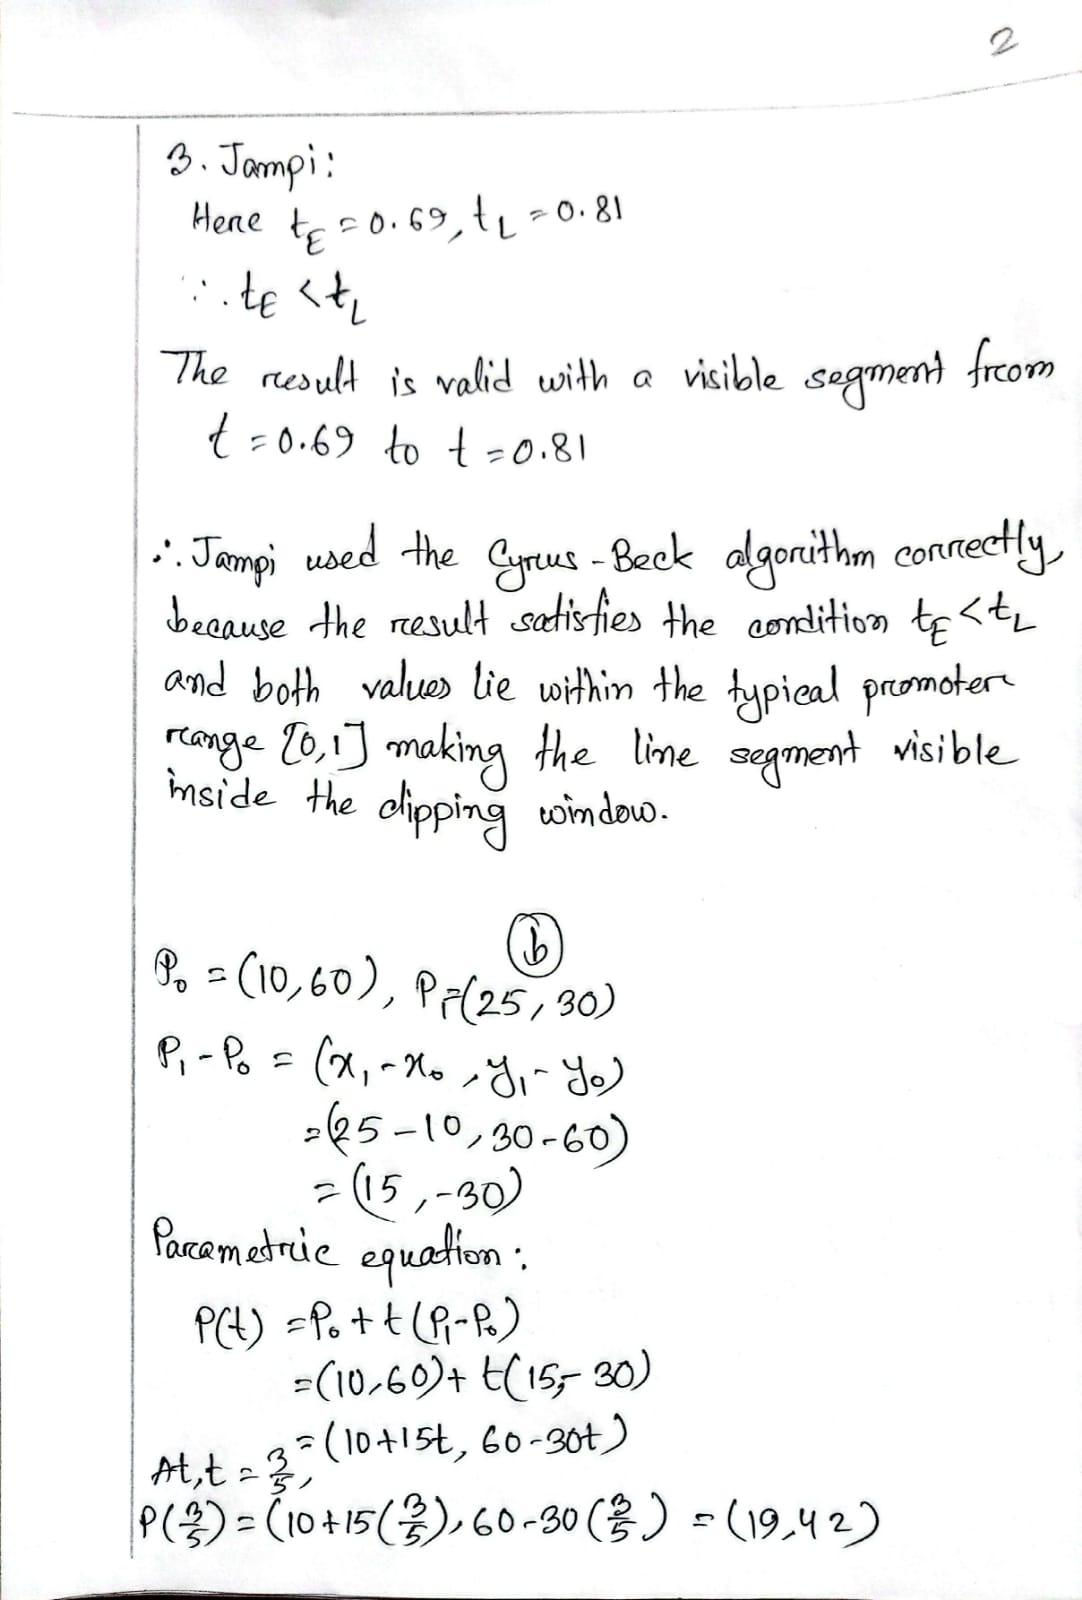 2
3. Jampi:
Here t_E = 0.69, t_L = 0.81
∴ t_E < t_L
The result is valid with a visible segment from
t = 0.69 to t = 0.81
∴ Jampi used the Cyrus-Beck algorithm correctly,
because the result satisfies the condition t_E < t_L
and both values lie within the typical promoter
range [0,1] making the line segment visible
inside the clipping window.
(b)
P₀ = (10,60), P₁=(25,30)
P₁ - P₀ = (x₁ - x₀, y₁ - y₀)
= (25-10, 30-60)
= (15,-30)
Parametric equation:
P(t) = P₀ + t(P₁-P₀)
= (10,60) + t(15,-30)
= (10+15t, 60-30t)
At, t = 3/5,
P(3/5) = (10+15(3/5), 60-30(3/5)) = (19,42)